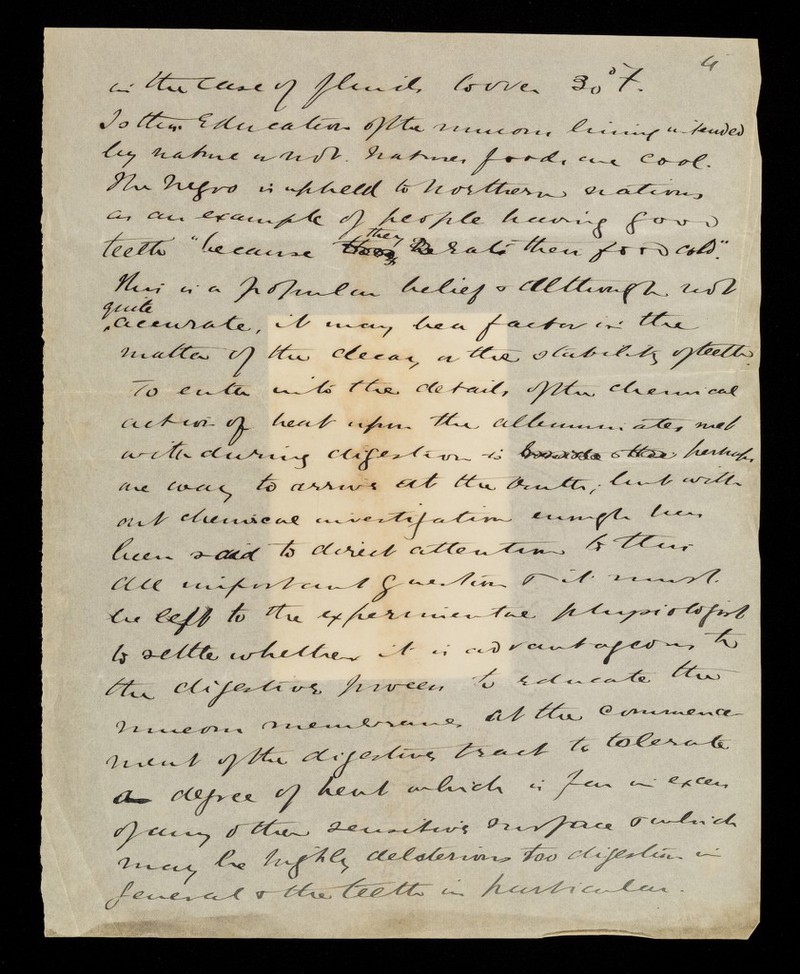 4
in the case of fluids to over 30° F.
Is this Education of the mucous lining intended
by nature or not. Natures foods are cool.
The Negro is upheld to Northern nations
as an example of people having good
teeth "because they eat their food cold".
This is a popular belief & although not
quite accurate, it may be a factor in the
matter of the decay or the stability of teeth.
To enter into the details of the chemical
action of heat upon the albuminates met
with during digestion is perhaps
one way to arrive at the truth; but with
out chemical investigation enough has
been said to direct attention to this
all important question & it must
be left to the experimental physiologist
to settle whether it is advantageous to
the digestive process to educate the
mucous membrane at the commence
ment of the digestive tract to tolerate
a degree of heat which is far in excess
of any other sensitive surface & which
may be highly deleterious too digestion in
general & the teeth in particular.